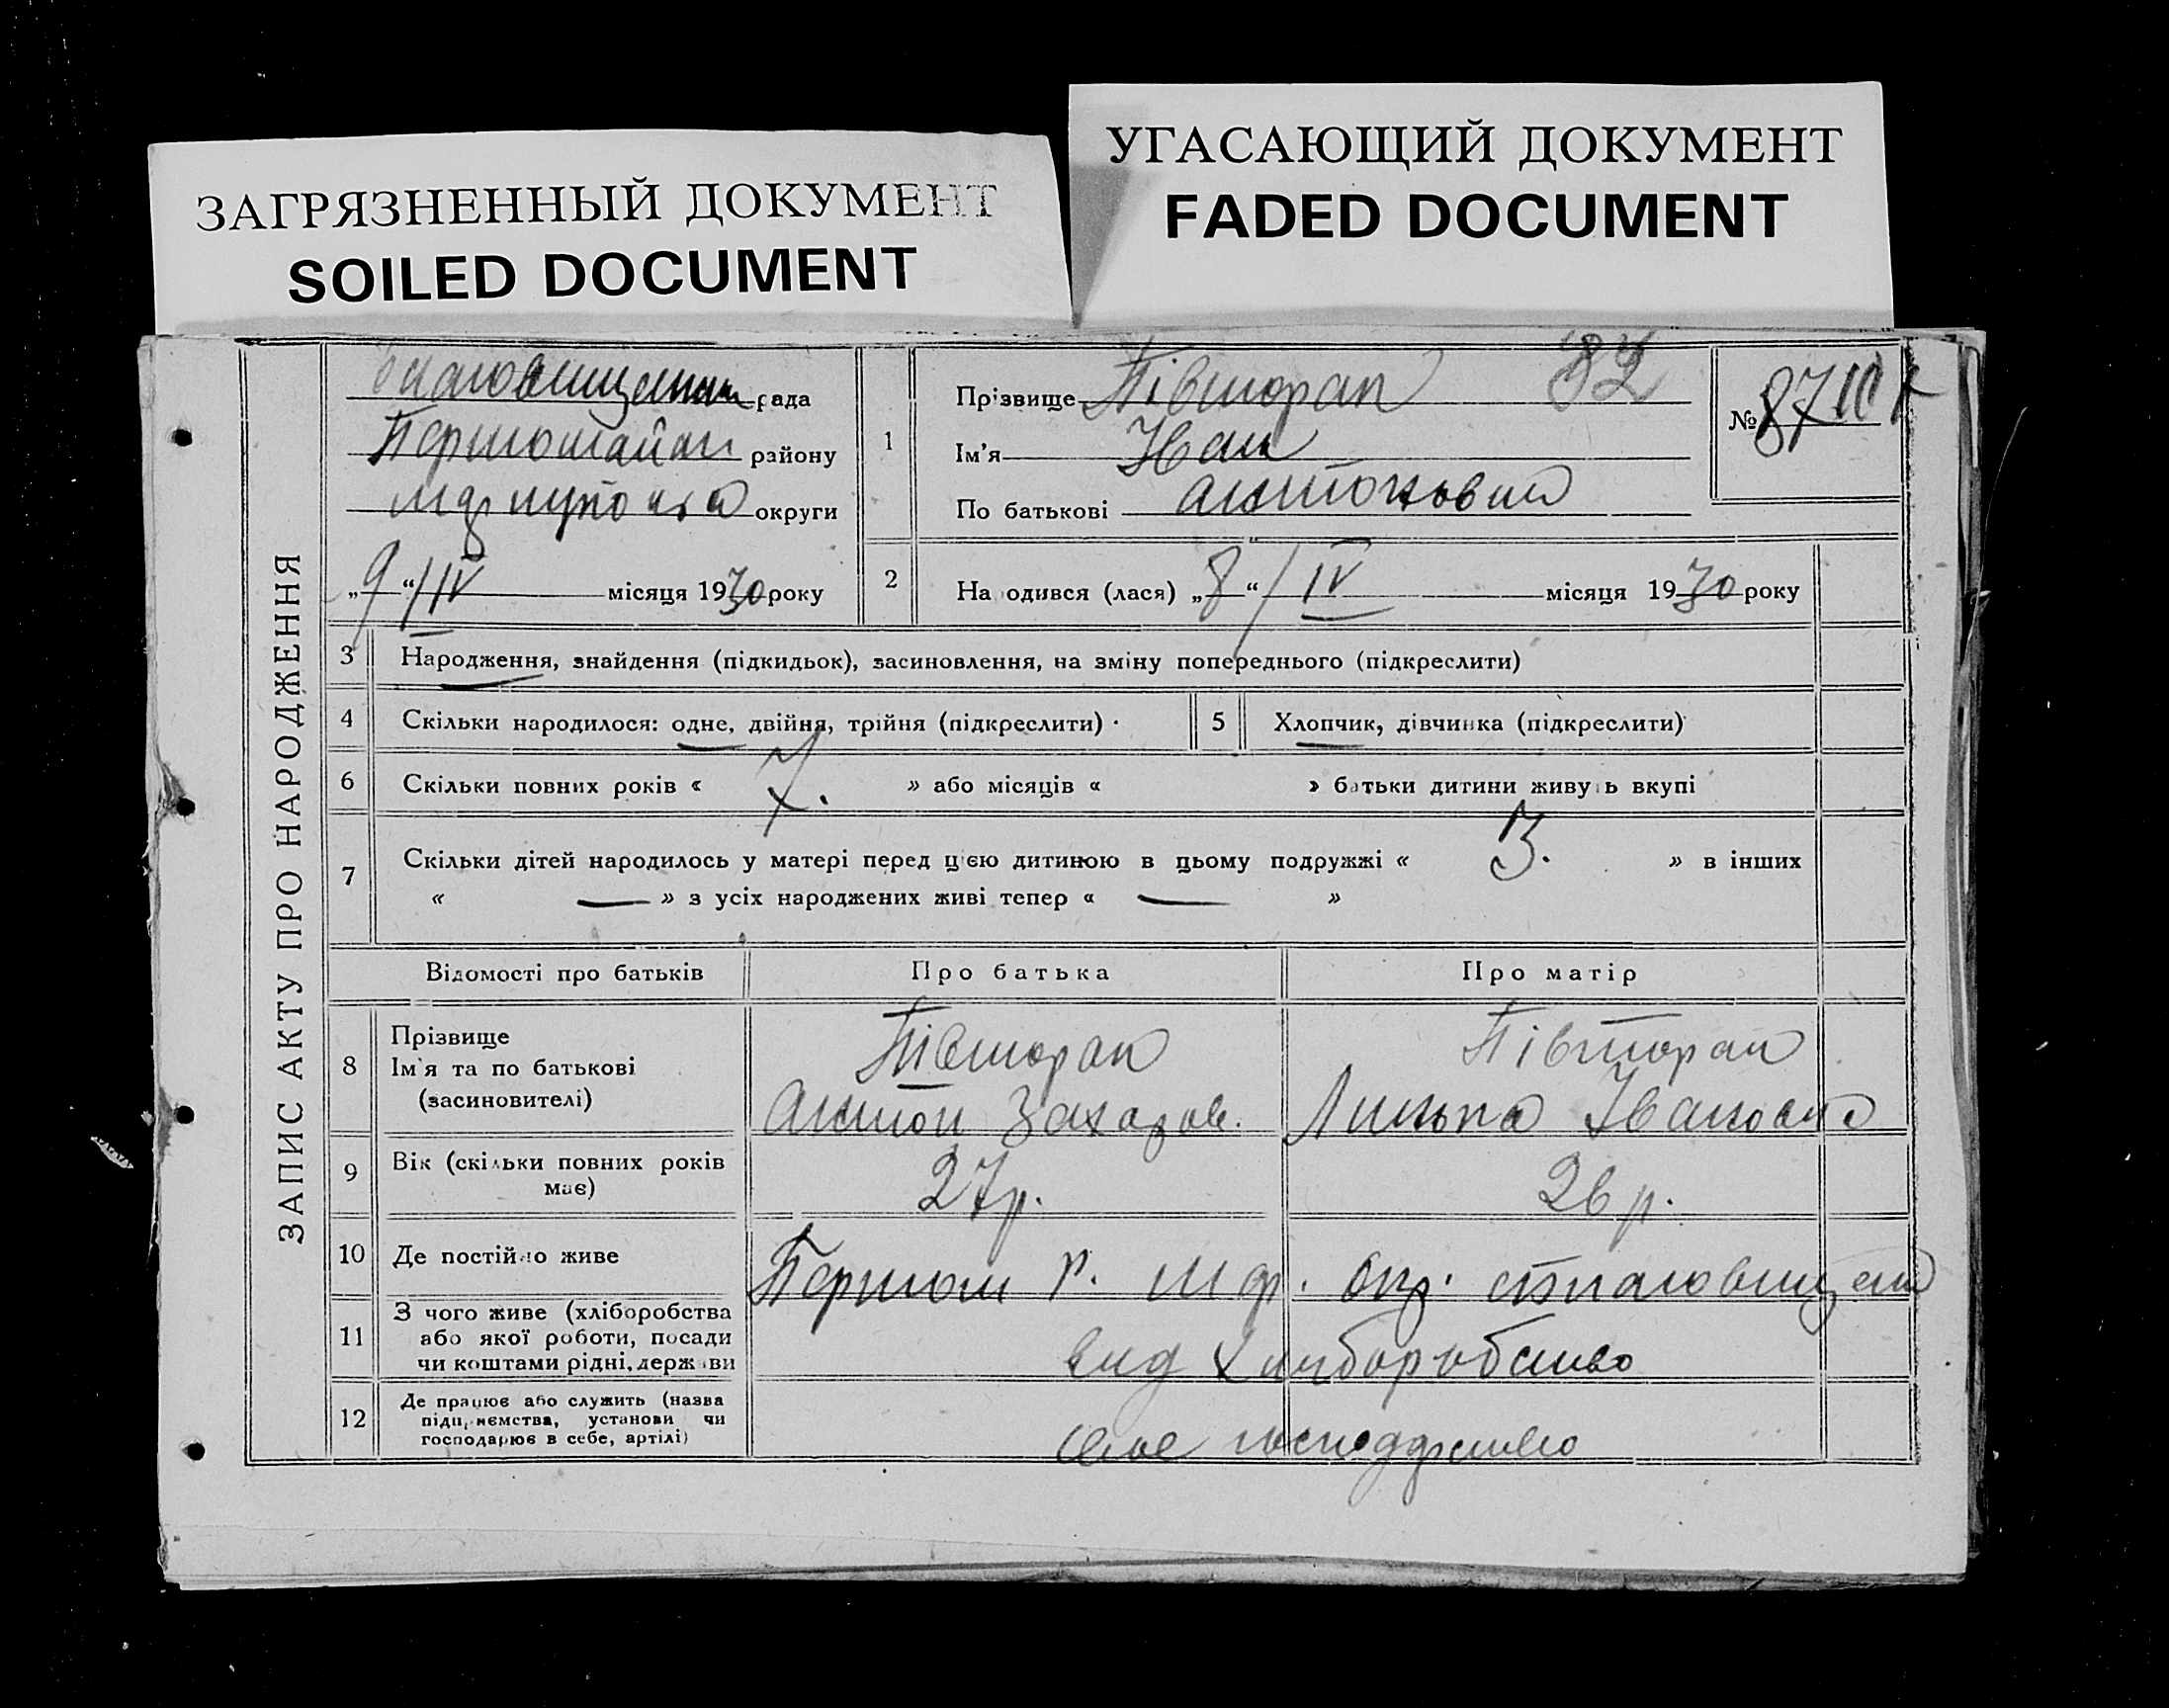 ЗАГРЯЗНЕННЫЙ ДОКУМЕНТ
SOILED DOCUMENT
УГАСАЮЩИЙ ДОКУМЕНТ
FADED DOCUMENT
ЗАПИС АКТУ ПРО НАРОДЖЕННЯ
рада
району
округи
„9“/IV місяця 1930 року
1
Прізвище Півторак 82
Ім'я Иван
По батькові Антонович
№ 87
2 На одився (лася) „8“/IV місяця 1930 року
3 Народження, знайдення (підкидьок), засиновлення, на зміну попереднього (підкреслити)
4 Скільки народилося: одне, двійня, трійня (підкреслити)
5 Хлопчик, дівчинка (підкреслити)
6 Скільки повних років « 7. » або місяців « » батьки дитини живуть вкупі
7 Скільки дітей народилось у матері перед цією дитиною в цьому подружжі « 3. » в інших
« — » з усіх народжених живі тепер « — »
Відомості про батьків Про батька Про матір
8 Прізвище Півторак Півторак
Ім'я та по батькові
(засиновителі) Антон Захаров. Ивановна
9 Вік (скільки повних років
має) 27 р. 26 р.
10 Де постійно живе Першом р. Мар. окр.
11 З чого живе (хліборобства
або якої роботи, посади
чи коштами рідні, держави
від хліборобство
12 Де працює або служить (назва
підприємства, установи чи
господарює в себе, артілі)
своє господарство